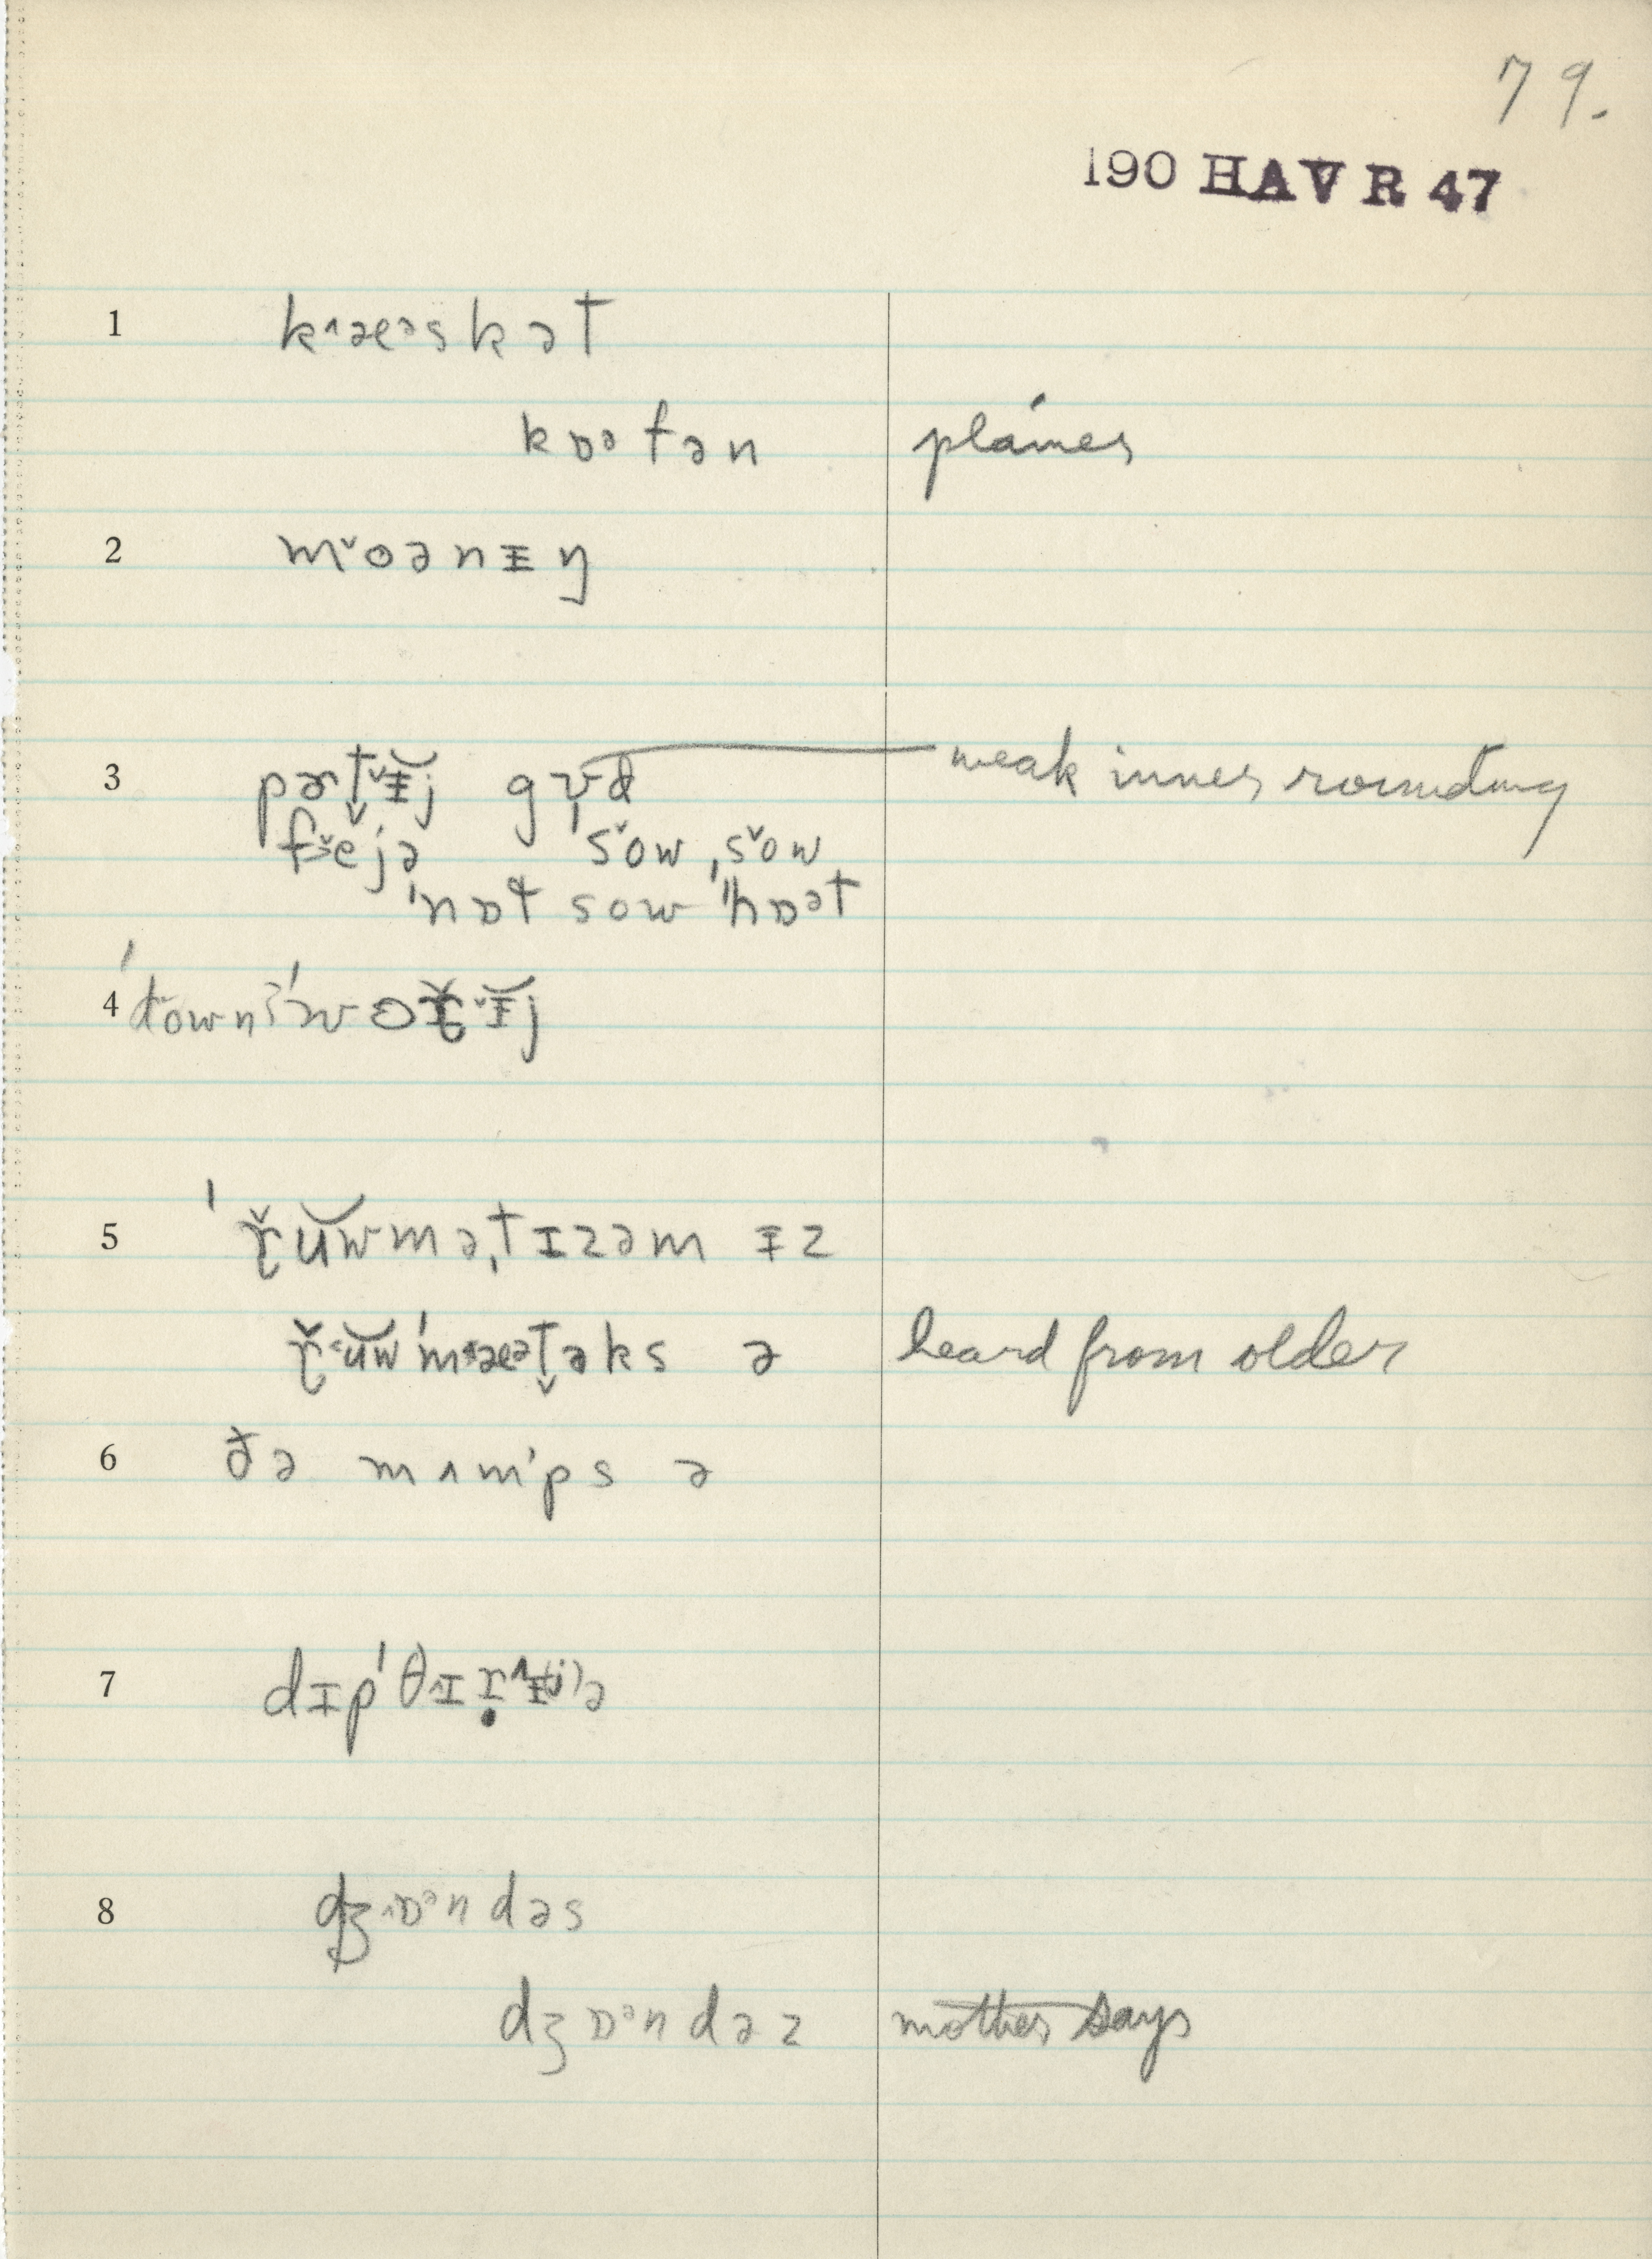 79.
190 HAVR 47
1 k˄æᵊskət
kɒᵊfən plámes
2 m˅oənɪ̵ŋ
3 pɚt̬˅ɪ̵̆j gɤd weak inner rounding
f˃˅ejə s˅ow ˌs˅ow
ˈnɒt sow ˈhɒət
4 ˈdownᵊˈwɔɪ̵̆j
5 ˈř̨ŭwməˌtɪzəm ɪ̵z
ř̨˂ŭwˈm˂æᵊt̬əks ə heard from older
6 ðə mʌmˈps ə
7 dɪpˈθ˄ɪṛ˄ɪ̵(j)ə
8 dʒ˄ɒᵊndəs
dʒɒᵊndəz mother says